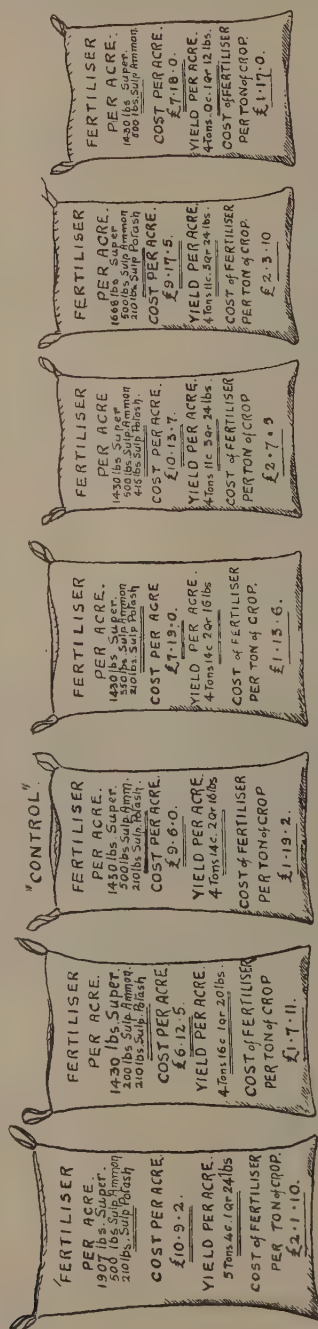 FERTILISER
PER ACRE.
1907 lbs. Super.
500 lbs. Sulp Ammon
210 lbs. Sulp Potash
COST PER ACRE.
£10.9.2.
YIELD PER ACRE.
5 Tons 4c. 1Qr 24 lbs
COST of FERTILISER
PER TON of CROP.
£2.1.10.
FERTILISER
PER ACRE.
1430 lbs. Super.
200 lbs Sulp Ammon.
210 lbs Sulp Potash
COST PER ACRE
£6.12.5.
YIELD PER ACRE.
4 Tons 16c 1Qr 20 lbs.
COST of FERTILISER
PER TON of CROP
£1.7.11.
"CONTROL"
FERTILISER
PER ACRE.
1430 lbs Super.
500 lbs Sulp Amm.
210 lbs Sulp Potash.
COST PER ACRE.
£9.6.0.
YIELD PER ACRE.
4 Tons 14c. 2Qr 16 lbs
COST of FERTILISER
PER TON of CROP
£1.19.2.
FERTILISER
PER ACRE.
1430 lbs Super.
550 lbs Sulp Ammon
210 lbs. Sulp Potash
COST PER ACRE
£7.19.0.
YIELD PER ACRE.
4 Tons 14c 2Qr 16 lbs
COST of FERTILISER
PER TON of CROP.
£1.13.6.
FERTILISER
PER ACRE
1430 lbs Super
500 lbs Sulp Ammon
415 lbs Sulp Potash.
COST PER ACRE.
£10.13.7.
YIELD PER ACRE.
4 Tons 11c 3Qr 24 lbs.
COST of FERTILISER
PER TON of CROP
£2.7.9
FERTILISER
PER ACRE.
1668 lbs Super
500 lbs Sulp Ammon
210 lbs Sulp Potash
COST PER ACRE.
£9.17.5.
YIELD PER ACRE.
4 Tons 11c. 3Qr 24 lbs.
COST of FERTILISER
PER TON of CROP
£2.3.10
FERTILISER
PER ACRE.
1430 lbs Super.
500 lbs. Sulp Ammon.
COST PER ACRE.
£7.18.0.
YIELD PER ACRE.
4 Tons 0c. 1Qr 12 lbs.
COST of FERTILISER
PER TON of CROP.
£1.17.0.